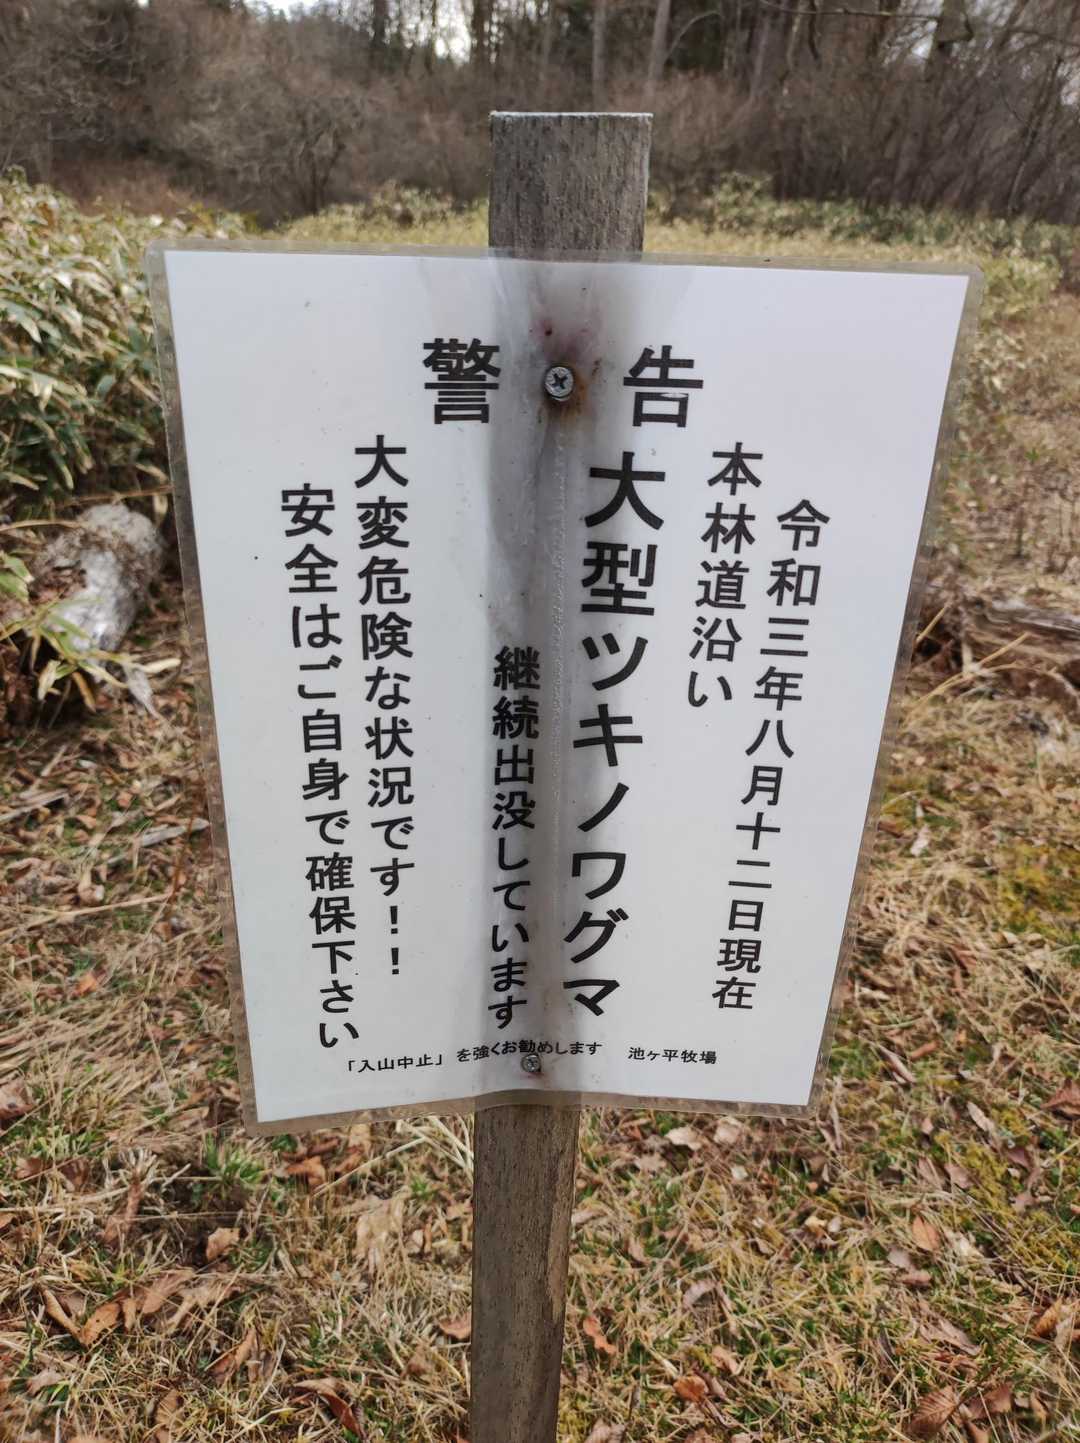 警告
令和三年八月十二日現在
本林道沿い
大型ツキノワグマ
継続出没しています
大変危険な状況です！！
安全はご自身で確保下さい
「入山中止」を強くお勧めします　池ヶ平牧場